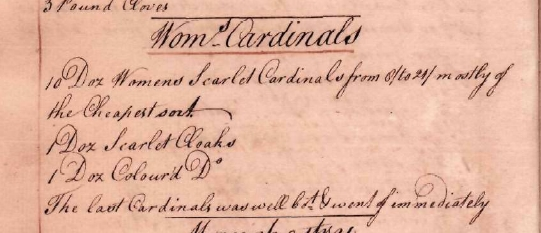 3 Pound Cloves
Wom.s Cardinals
10 Doz Womens Scarlet Cardinals from 8/ to 24/ mostly of
the Cheapest sort
1 Doz Scarlet Cloaks
1 Doz Colour'd Do
The last Cardinals was well bot. & went of immediately